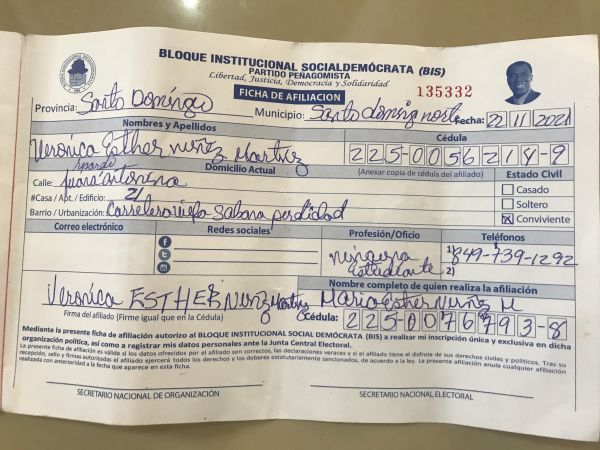 BLOQUE INSTITUCIONAL SOCIALDEMÓCRATA (BIS)
PARTIDO PEÑAGOMISTA
Libertad, Justicia, Democracia y Solidaridad
FICHA DE AFILIACION
135332
Provincia: Santo Domingo Municipio: Santo domingo norte Fecha: 22 11 2021
Nombres y Apellidos Cédula
Veronica Esther nuñez Martinez 225-0056214-9
Domicilio Actual (Anexar copia de cédula del afiliado) Estado Civil
Calle: Juana
Casado
#Casa / Apt. / Edificio: 21
Soltero
Barrio / Urbanización: Sabana perdidad
X Conviviente
Correo electrónico Redes sociales Profesión/Oficio Teléfonos
ninguna 1) 849-739-1292
Estudiante 2)
Nombre completo de quien realiza la afiliación
Veronica ESTHER Nuñez Martinez Maria Esther Nuñez M
Firma del afiliado (Firme igual que en la Cédula) Cédula: 225-0076793-8
Mediante la presente ficha de afiliación autorizo al BLOQUE INSTITUCIONAL SOCIAL DEMÓCRATA (BIS) a realizar mi inscripción única y exclusiva en dicha
organización política, así como a registrar mis datos personales ante la Junta Central Electoral.
La presente ficha de afiliación es válida si los datos ofrecidos por el afiliado son correctos, las declaraciones veraces y si el afiliado tiene el disfrute de sus derechos civiles y políticos. Tras su
recepción, sello y firmas autorizadas el afiliado ejercerá todos los derechos y los deberes estatutariamente sancionados, de acuerdo a la ley. La presente afiliación anula cualquier afiliación
realizada con anterioridad a la fecha que aparece en esta ficha.
SECRETARIO NACIONAL DE ORGANIZACIÓN SECRETARIO NACIONAL ELECTORAL